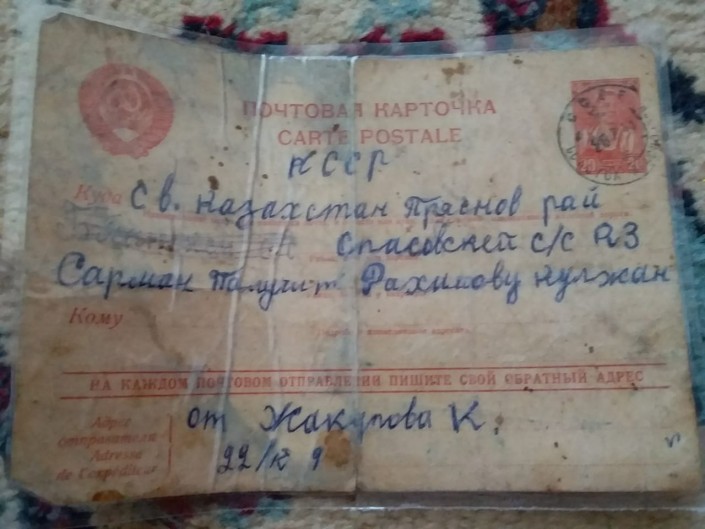 ПОЧТОВАЯ КАРТОЧКА
CARTE POSTALE
КССР
Куда Св. Казахстан Преснов рай
Спасовский с/с КЗ
Сарман Палучит Рахимову Кулжан
Кому
НА КАЖДОМ ПОЧТОВОМ ОТПРАВЛЕНИИ ПИШИТЕ СВОЙ ОБРАТНЫЙ АДРЕС
Адрес
отправителя
Adresse
de l'expéditeur
от Жакупова К.